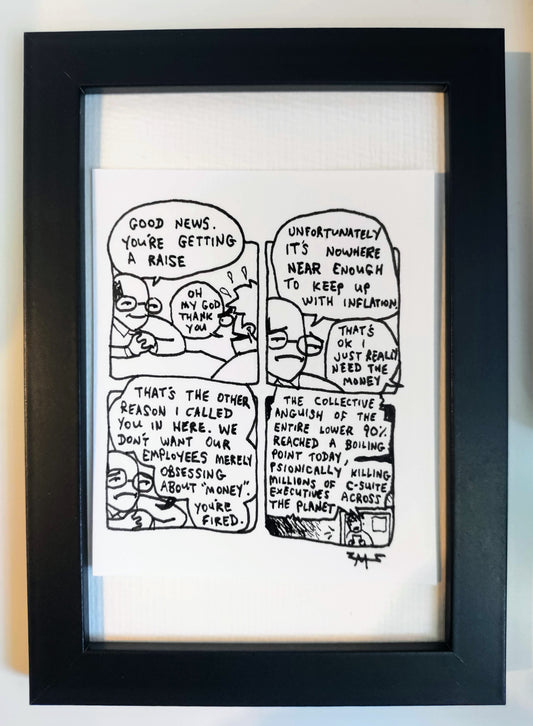 GOOD NEWS.
YOU'RE GETTING
A RAISE
OH
MY GOD
THANK
YOU
UNFORTUNATELY
IT'S NOWHERE
NEAR ENOUGH
TO KEEP UP
WITH INFLATION
THAT'S
OK I
JUST REALLY
NEED THE
MONEY
THAT'S THE OTHER
REASON I CALLED
YOU IN HERE. WE
DON'T WANT OUR
EMPLOYEES MERELY
OBSESSING
ABOUT "MONEY".
YOU'RE
FIRED.
THE COLLECTIVE
ANGUISH OF THE
ENTIRE LOWER 90%
REACHED A BOILING
POINT TODAY,
PSIONICALLY KILLING
MILLIONS OF C-SUITE
EXECUTIVES ACROSS
THE PLANET